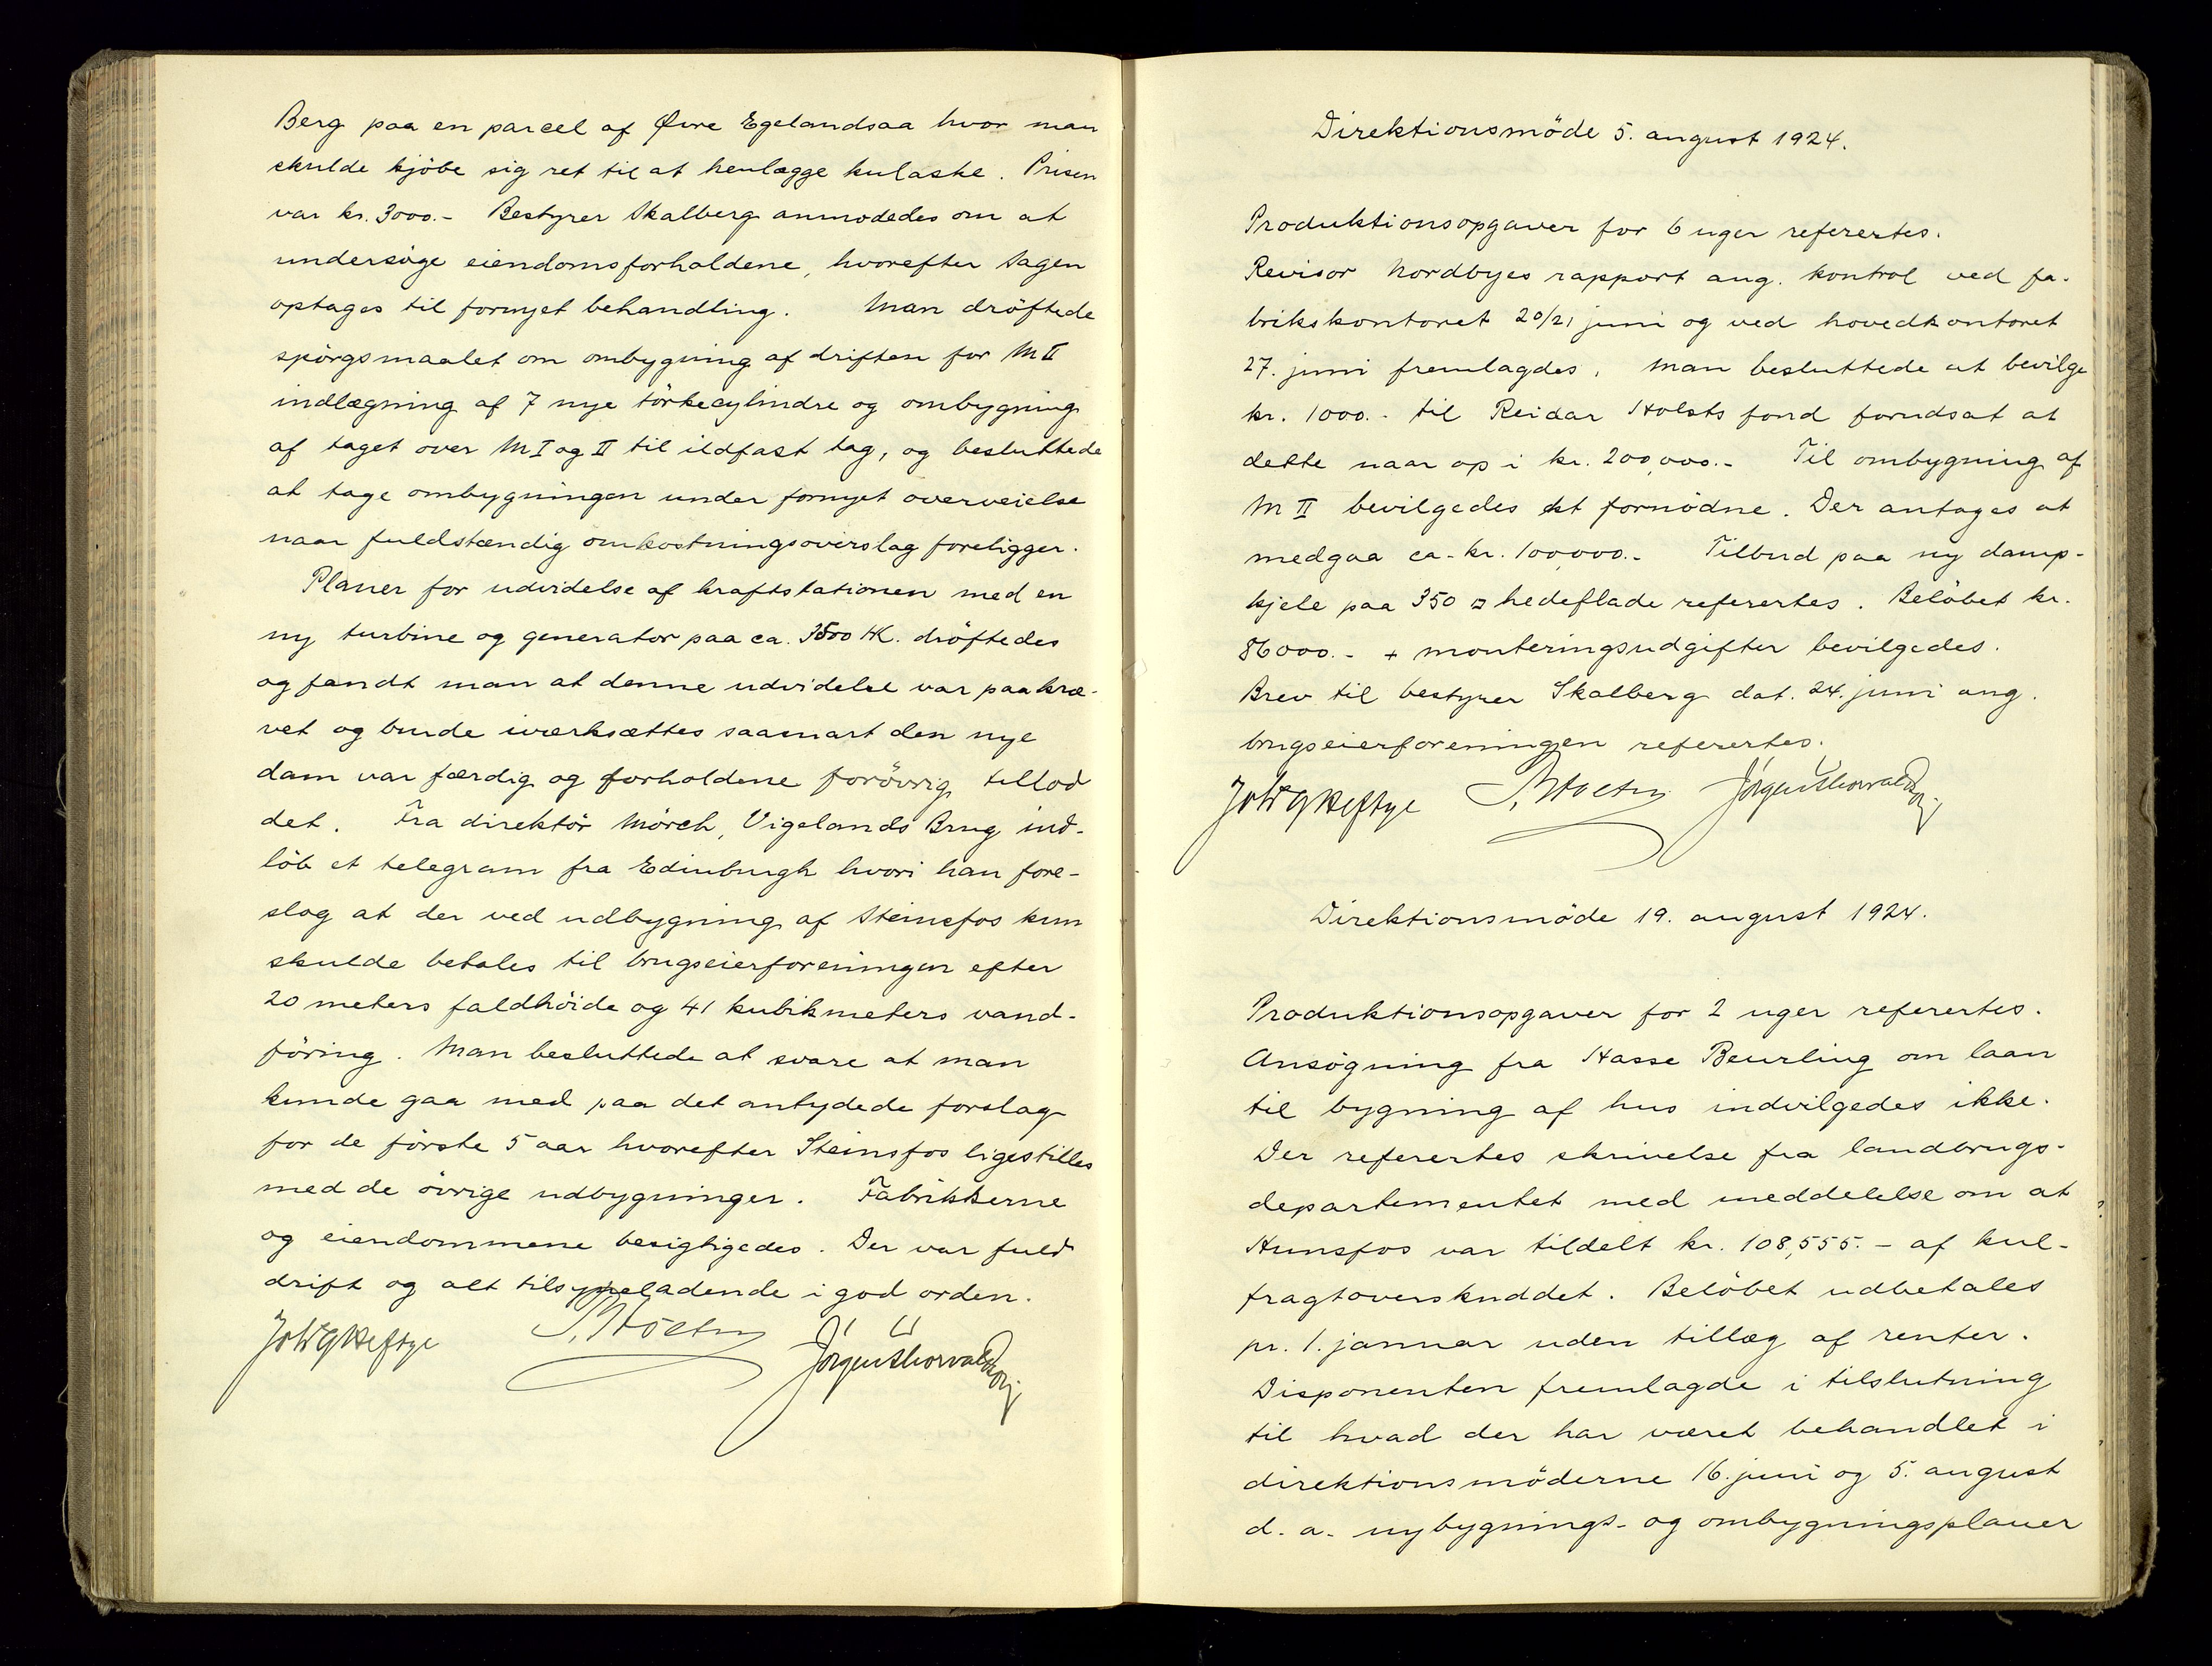 Berg paa en parcel af Øvre Egelandsaa hvor man
skulde kjöbe sig ret til at henlægge kulaske. Prisen
var kr. 3000.- Bestyrer Skalberg anmodedes om at
undersöge eiendomsforholdene, hvorefter sagen
optages til fornyet behandling. Man dröftede
spörgsmaalet om ombygning af driften for M II
indlægning af 7 nye törkecylindre og ombygning
af taget over M I og II til ildfast tag, og besluttede
at tage ombygningen under fornyet overveielse
naar fuldstændig omkostningsoverslag foreligger.
Planer for udvidelse af kraftstationen med en
ny turbine og generator paa ca. 3500 HK. dröftedes
og fandt man at denne udvidelse var paakræ-
vet og burde iværksættes saasnart den nye
dam var færdig og forholdene forövrig tillod
det. Fra direktör Mörch, Vigelands Brug ind-
löb et telegram fra Edinburgh hvori han fore-
slog at der ved udbygning af Steinsfos kun
skulde betales til brugseierforeningen efter
20 meters faldhöide og 41 kubikmeters vand-
föring. Man besluttede at svare at man
kunde gaa med paa det antydede forslag
for de förste 5 aar hvorefter Steinsfos ligestilles
med de övrige udbygninger. Fabrikkerne
og eiendommene besigtigedes. Der var fuld
drift og alt tilsyneladende i god orden.
Joh G Heftye Jörgen Thorvaldson
Direktionsmöde 5. august 1924.
Produktionsopgaver for 6 uger refererters.
Revisor Nordbyes rapport ang. kontrol ved fa-
brikskontoret 20/21 juni og ved hovedkontoret
27. juni fremlagdes. Man besluttede at bevilge
kr. 1000.- til Reidar Holsts fond forudsat at
dette naar op i kr. 200,000.- Til ombygning af
M II bevilgedes det fornödne. Der antages at
medgaa ca. kr. 100,000.- Tilbud paa ny damp-
kjele paa 350 □ hedeflade referertes. Belöbet kr.
86000.- + monteringsudgifter bevilgedes.
Brev til bestyrer Skalberg dat. 24. juni ang.
brugseierforeningen referertes.
Joh G Heftye Jörgen Thorvaldson
Direktionsmöde 19. august 1924.
Produktionsopgaver for 2 uger referertes.
Ansögning fra Hasse Beurling om laan
til bygning af hus indvilgedes ikke.
Der referertes skrivelse fra landbrugs-
departementet med meddelelse om at
Hunsfos var tildelt kr. 108,555.- af kul-
fragtoverskuddet. Belöbet udbetales
pr. 1. januar uden tillæg af renter.
Disponenten fremlagde i tilslutning
til hvad der har været behandlet i
direktionsmöderne 16. juni og 5. august
d. a. nybygnings- og ombygningsplaner